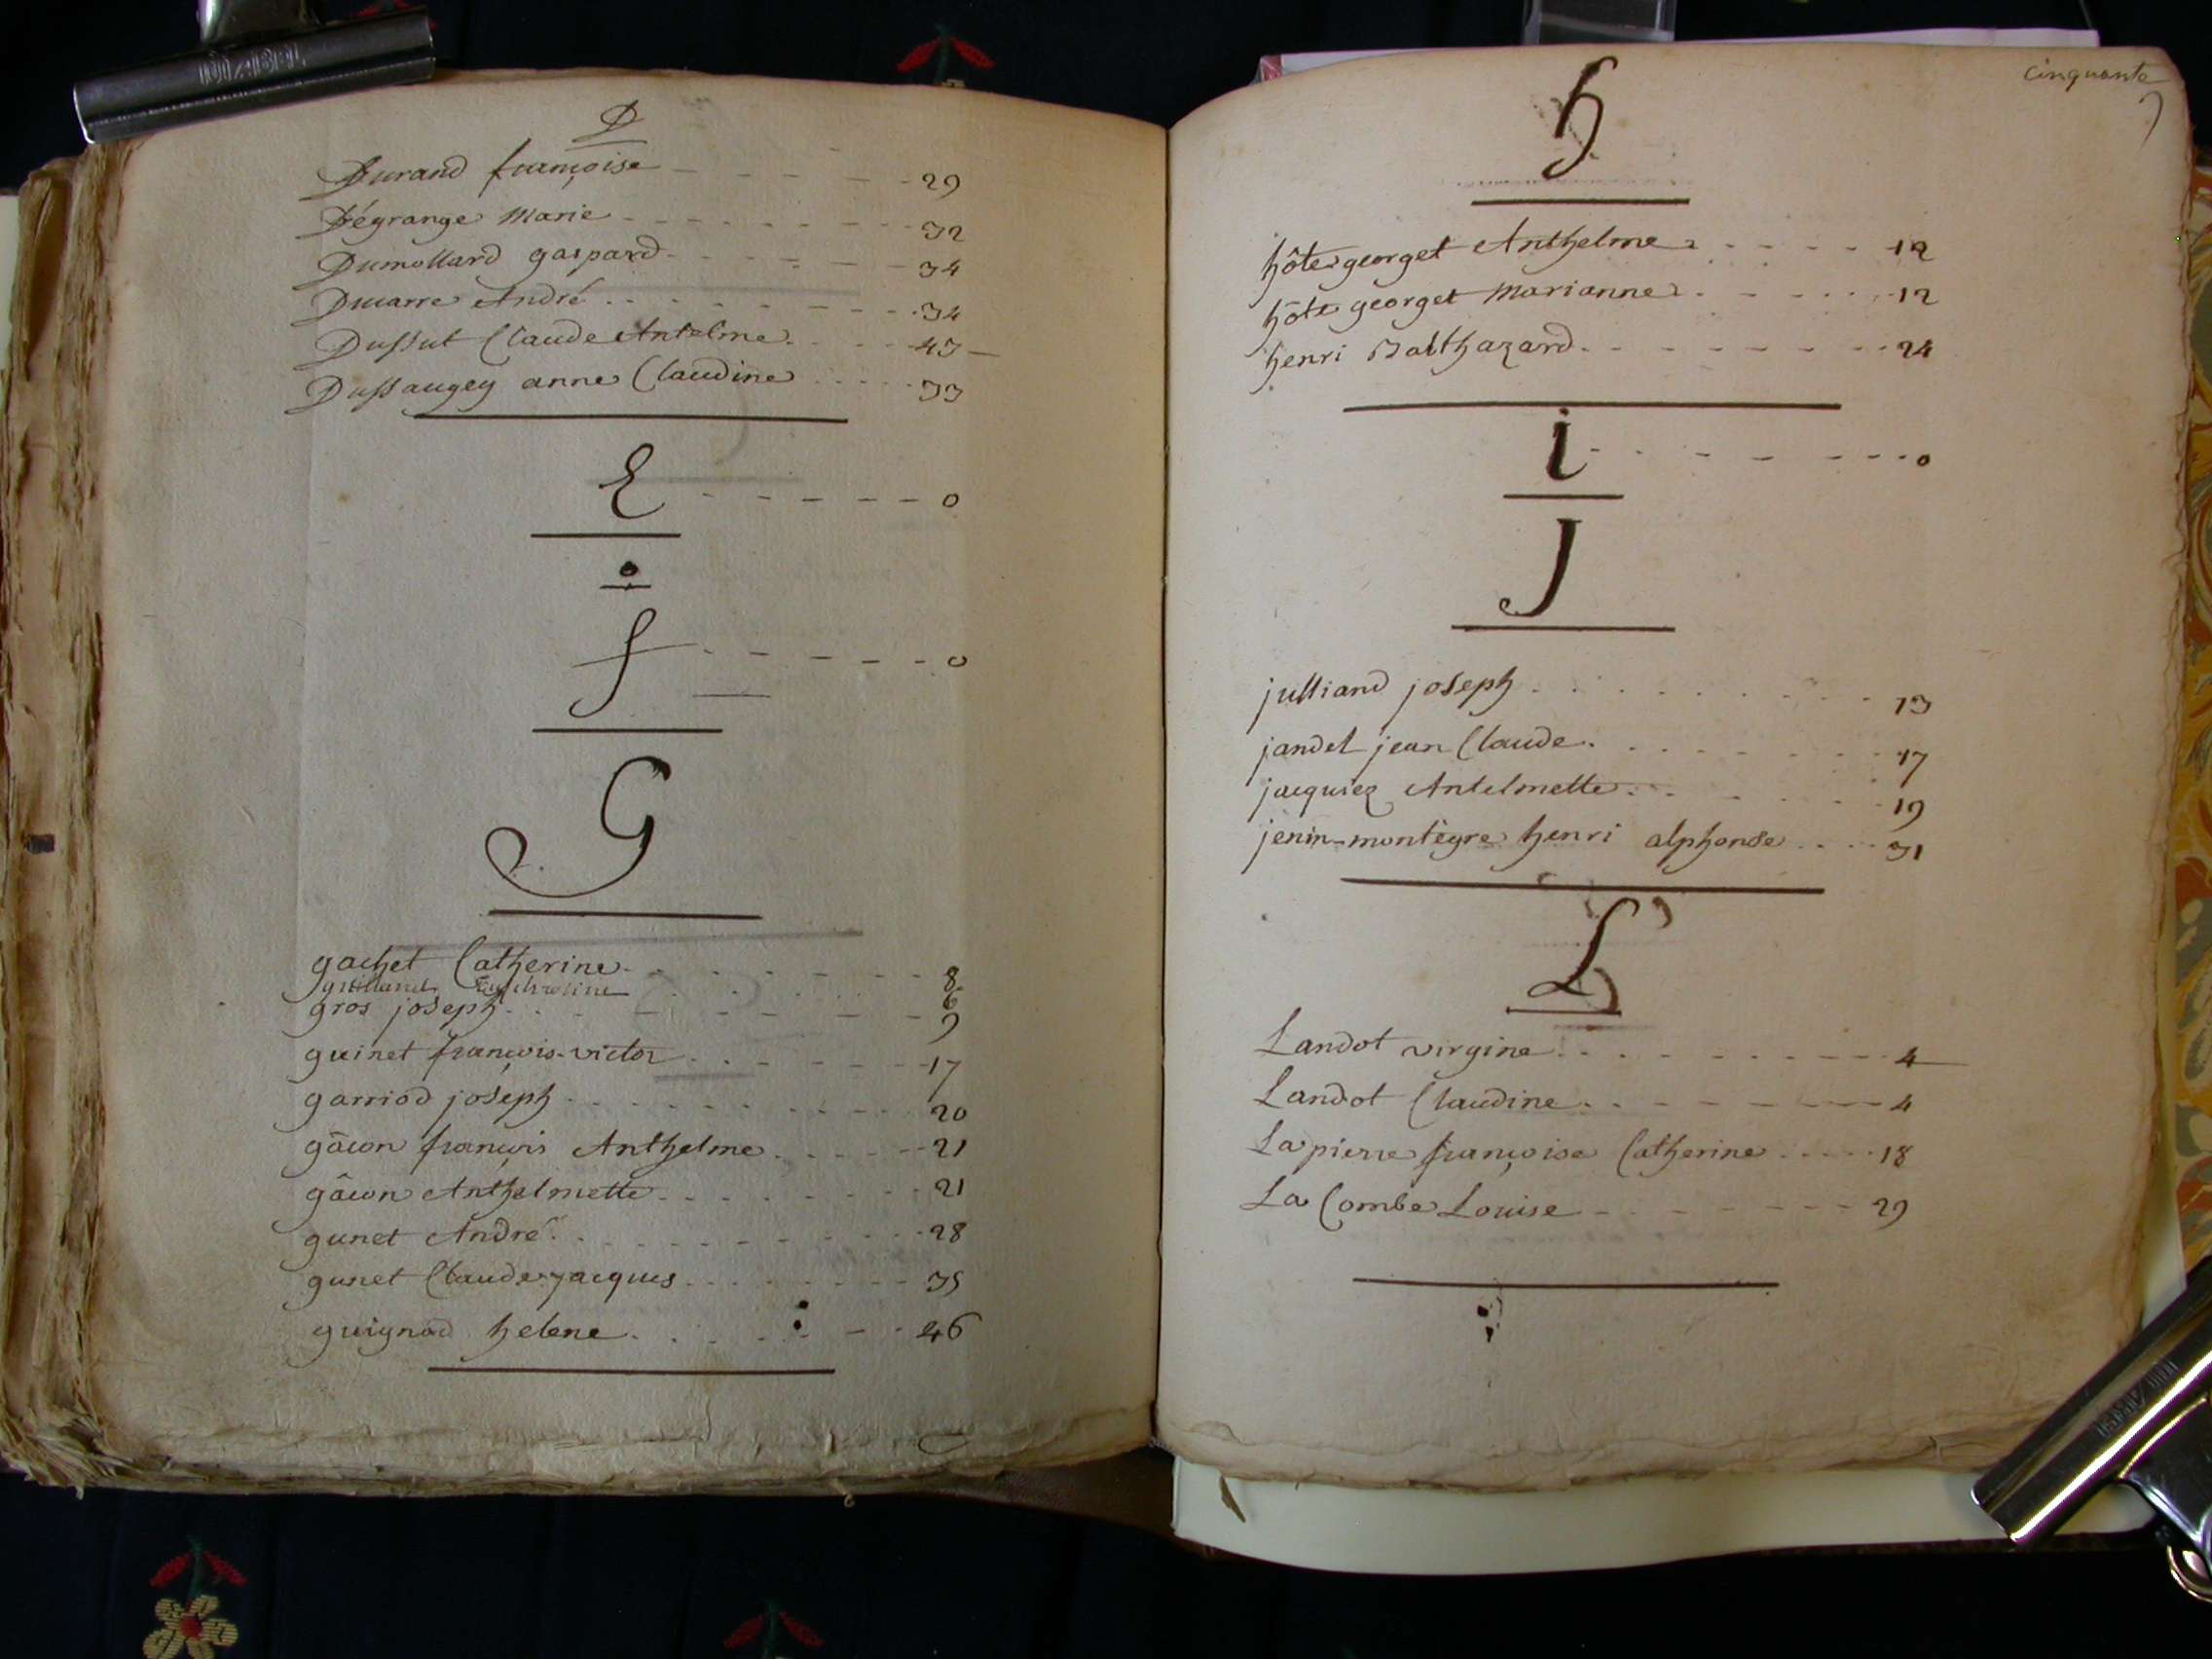 D
Durand françoise - - - - - 29
Dégrange Marie - - - - - 32
Dumollard gaspard - - - - - 34
Ducarre André - - - - - 34
Dussut Claude Antelme - - - 43
Dussaugey anne Claudine - - - 33
E - - - - - 0
f - - - - - 0
G
gachet Catherine - - - - - 8
6
gros joseph - - - - - 9
guinet françois-victor - - - - - 17
garriod joseph - - - - - 20
gâcon françois Anthelme - - - - 21
gâcon Anthelmette - - - - - 21
gunet André - - - - - 28
gunet Claude-jacques - - - - - 35
guignod helene - - - - - 46
cinquante
h
hôte georget Anthelme - - - - 12
hôte georget Marianne - - - - 12
henri Balthazard - - - - - 24
i - - - - - 0
J
julliand joseph - - - - - 13
jandet jean Claude - - - - - 17
jacquiez Antelmette - - - - - 19
jenin-montègre henri alphonse - - - 31
L
Landot virgine - - - - - 4
Landot Claudine - - - - - 4
Lapierre françoise Catherine - - - 18
La Combe Louise - - - - - 29
NIABEL